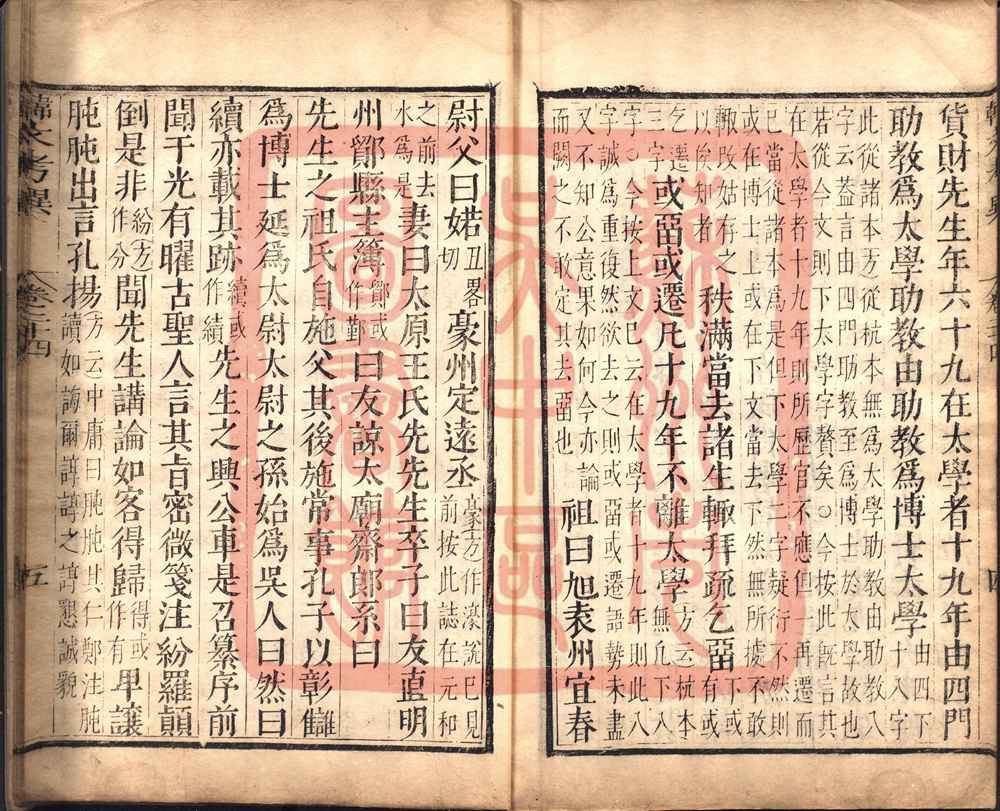 貨財先生年六十九在太學者十九年由四門
助教爲太學助教由助教爲博士太學由四下十八字
此從諸本方從杭本無爲太學助教由助教八
字云蓋言由四門助教至爲博士於太學故也
若從今文則下太學字贅矣○今按此旣言其
在太學者十九年則所歷官不應但一再遷而
已當從諸本爲是但下太學二字疑衍不然則
或在博士上或在下文當去下然無所據不敢
輙改姑存之以俟知者秩滿當去諸生輙拜疏乞畱下或有或
乞遷三字或畱或遷凡十九年不離太學方云杭本無凡下八
字○今按上文已云在太學者十九年則此八
字誠爲重復然欲去之則或畱或遷語勢未盡
又不知公意果如何今亦論而闕之不敢定其去畱也祖曰旭袁州宜春
尉父曰婼丑畧切豪州定遠丞豪方作濠說已見前按此誌在元和
之前去水爲是妻曰太原王氏先先生卒子曰友直明
州鄮縣主簿鄮或作鄞曰友諒太廟齋郎系曰
先生之祖氏自施父其後施常事孔子以彰讎
爲博士延爲太尉太尉之孫始爲吳人曰然曰
續亦載其跡續或作績先生之興公車是召纂序前
聞于光有曜古聖人言其旨密微箋注紛羅顛
倒是非紛方作分聞先生講論如客得歸得或作有卑讓
肫肫出言孔揚方云中庸曰肫肫其仁鄭注肫讀如誨爾諄諄之諄懇誠貌
韓文考異 卷二十四 五